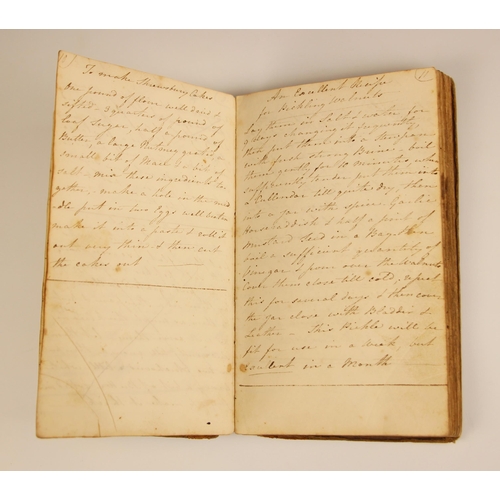 To make Shrewsbury Cakes
One pound of flour well dried &
sifted 3 quarters of pound of
loaf Sugar, half a pound of
Butter, a large Nutmeg grated, a
small bit of Mace & a bit of
salt mix these ingredients to=
gether, make a hole in the mid
dle put in two Eggs well beaten
make it into a paste & roll it
out very thin & then cut
the cakes out
11
An Excellent Receipt
for Pickling Walnuts
Lay them in Salt & water for
Days changing it frequently
then put them into a Stewpan
with fresh strong Brine, boil
them gently for 10 minutes when
sufficiently tender put them into
a Cullendar till quite dry, then
into a Jar with spice Garlic
Horseraddish & half a pint of
Mustard Seed in a Bag then
boil a sufficient quantity of
Vinegar & pour over the Walnuts
Cover them close till cold, repeat
this for several days & then cover
the jar close with Bladder &
Leather — This Pickle will be
fit for use in a Week but
in a Month